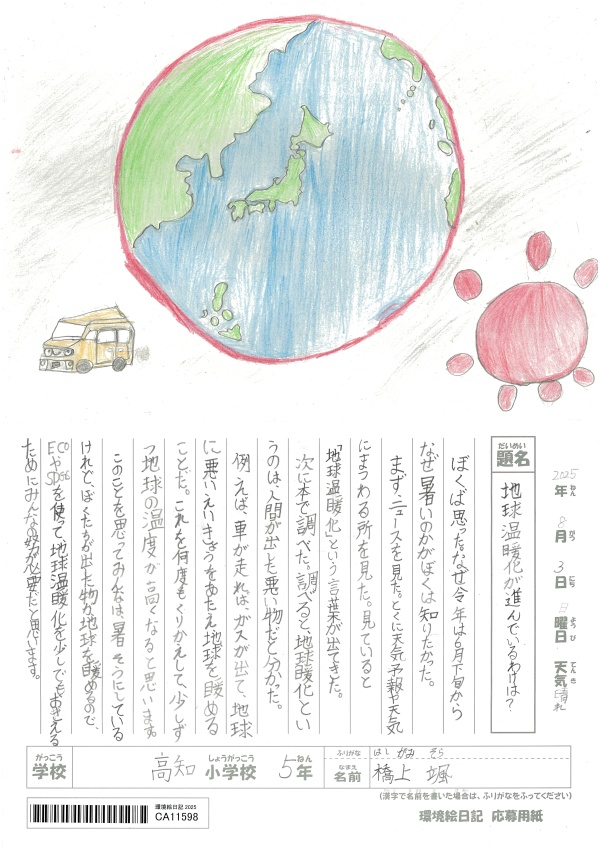 2025年ねん 8月がつ 3日にち 日曜日ようび 天気てんき 晴れ
題名だいめい 地球温暖化が進んでいるわけは?
ぼくは思ったなぜ今年は6月下旬から
なぜ暑いのかがぼくは知りたかった。
まず、ニュースを見た。とくに天気予報や天気
にまつわる所を見た。見ていると
「地球温暖化」という言葉が出てきた。
次に本で調べた。調べると地球暖化とい
うのは、人間が出した悪い物だと分かった。
例えば、車が走れば、ガスが出て、地球
に悪いえいきょうをあたえ地球を暖める
ことだ。これを何度もくりかえして、少しず
つ地球の温度が高くなると思います。
このことを思ってみんなは、暑そうにしている
けれど、ぼくたちが出した物が地球を暖めるので、
ECOやSDGsを使って、地球温暖化を少しでもおさえる
ためにみんなの努力が必要だと思います。
学校がっこう 高知 小学校しょうがっこう 5年ねん
ふりがな はし がみ そら
名前なまえ 橋上 颯
(漢字で名前を書いた場合は、ふりがなをふってください)
環境絵日記 2025
CA11598
環境絵日記 応募用紙